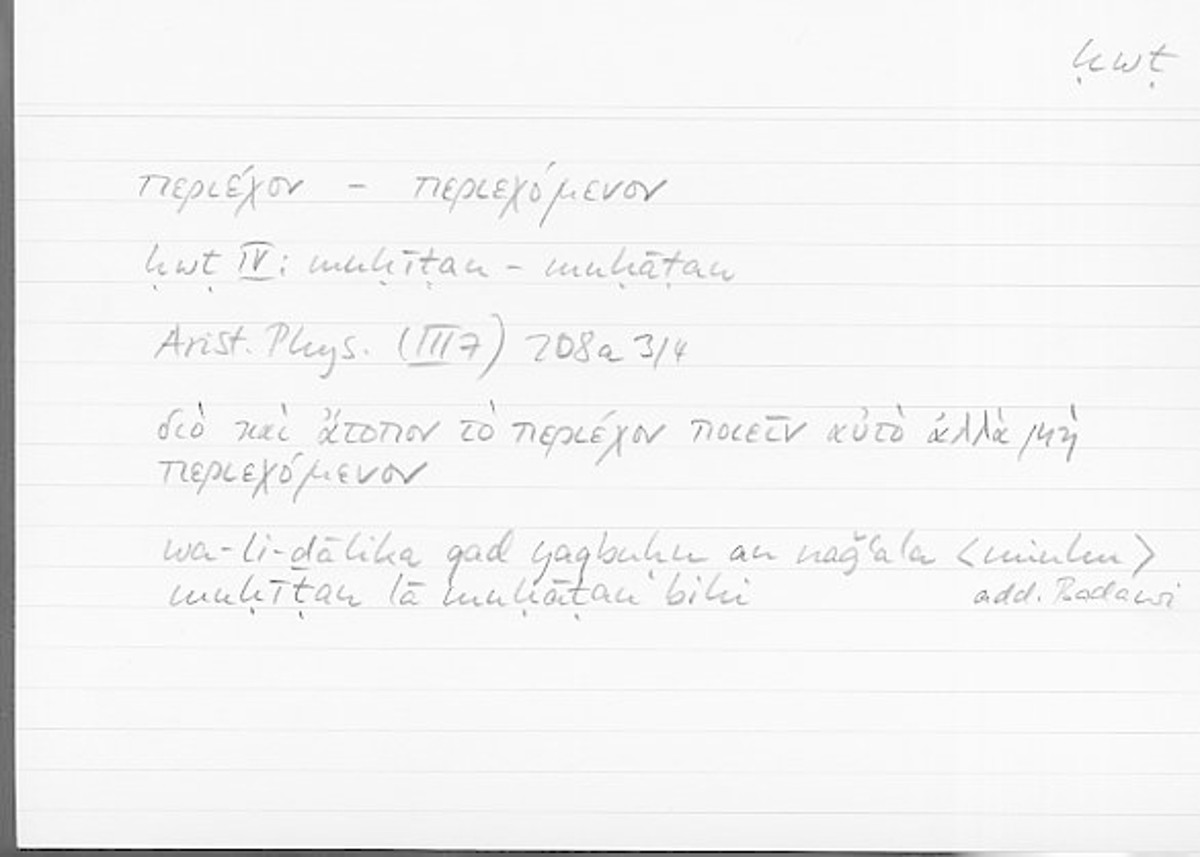 ḥwṭ
περιέχον – περιεχόμενον
ḥwṭ IV: muḥīṭan – muḥāṭan
Arist. Phys. (III 7) 208a 3/4
διὸ καὶ ἄτοπον τὸ περιέχον ποιεῖν αὐτὸ ἀλλὰ μὴ
περιεχόμενον
wa-li-ḏālika qad yaqbuḥu an naǧʿala <minhu>
muḥīṭan lā muḥāṭan bihi add. Badawi